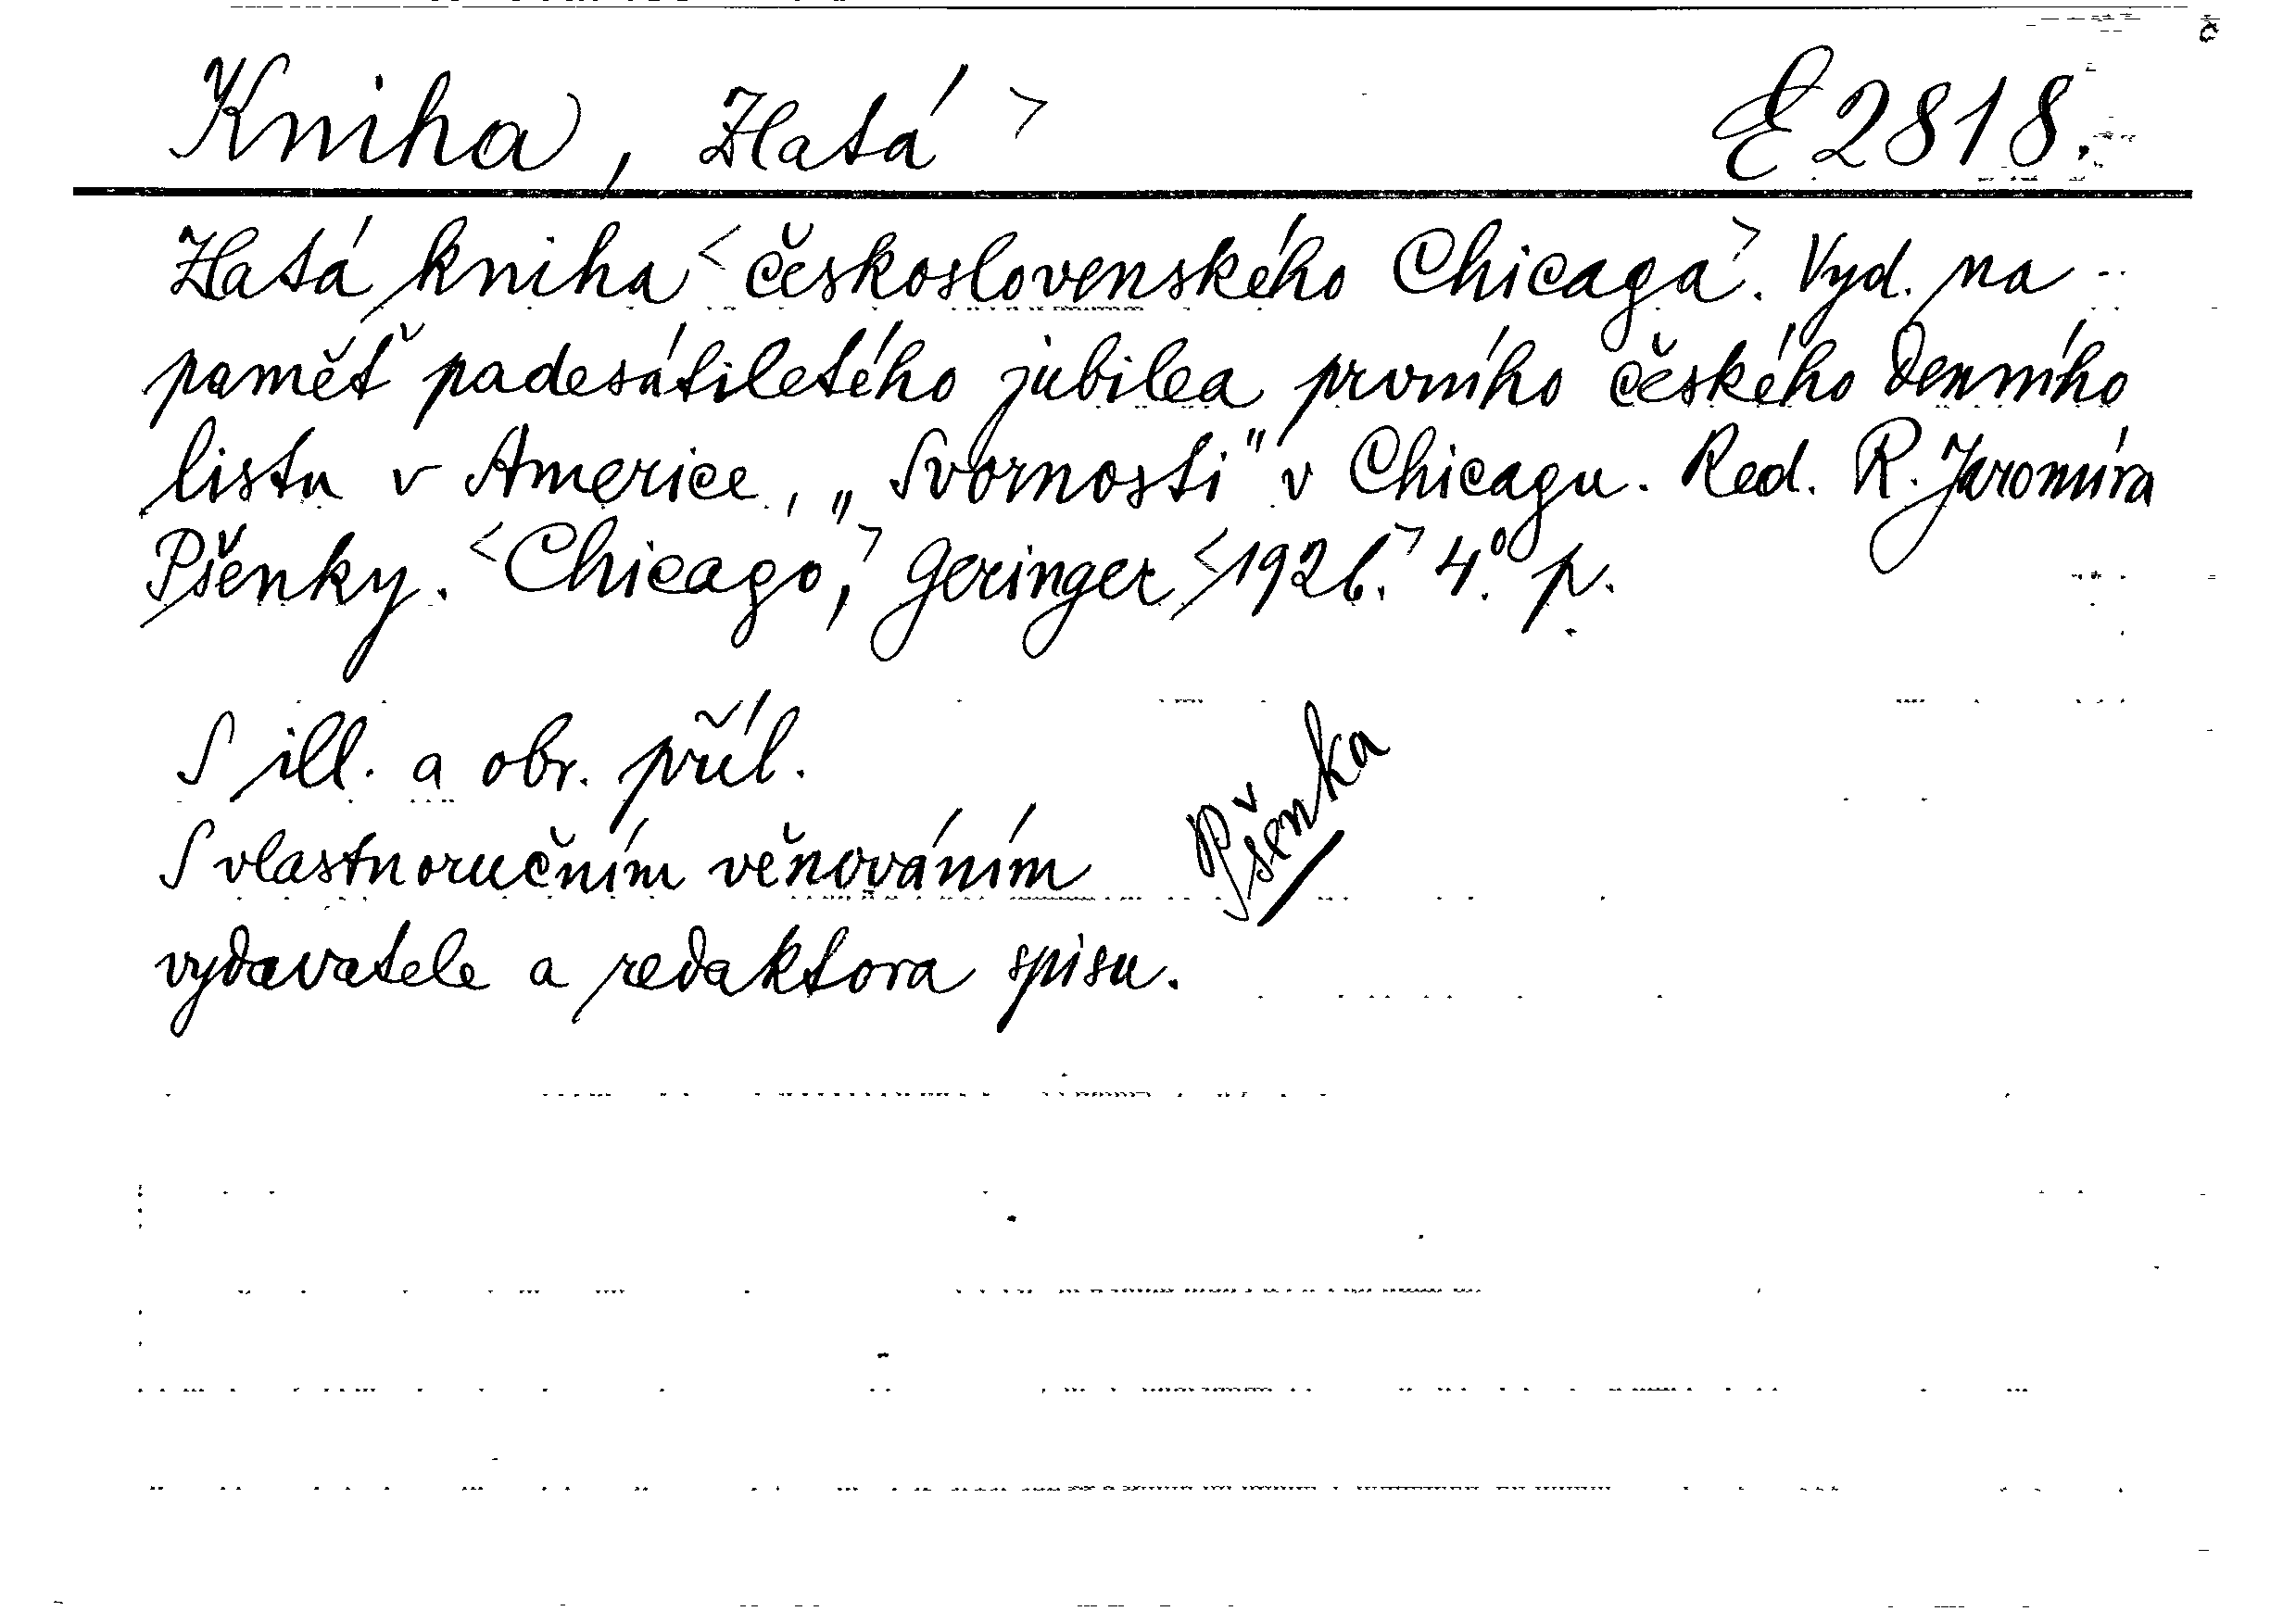 Kniha, Zlatá > E 2818.
Zlatá kniha < československého Chicaga >. Vyd. na
paměť padesátiletého jubilea prvního českého denního
listu v Americe, „Svornosti" v Chicagu. Red. R. Jaromíra
Pšenky. < Chicago, > Geringer < 1926. > 4.° p.
S ill. a obr. příl.
S vlastnoručním věnováním
vydavatele a redaktora spisu.
Pšenka